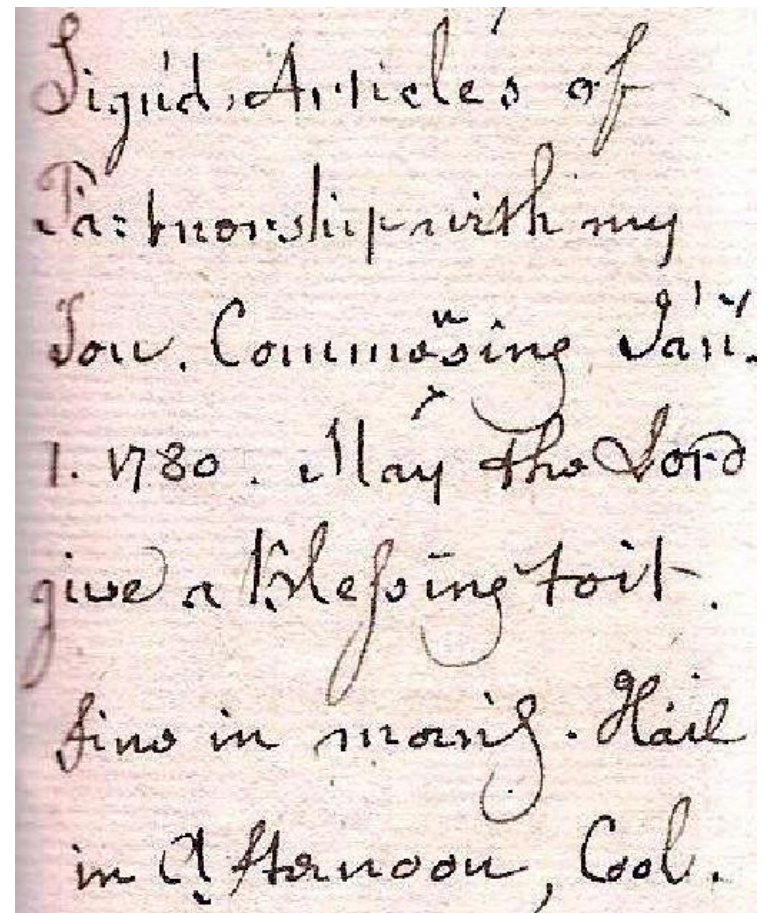 Sign'd Articles of
Partnership with my
Son. Commensing Jan'y.
1. 1780. May the Lord
give a Blessing to it.
fine in morn'g. Hail
in Afternoon, Cool.